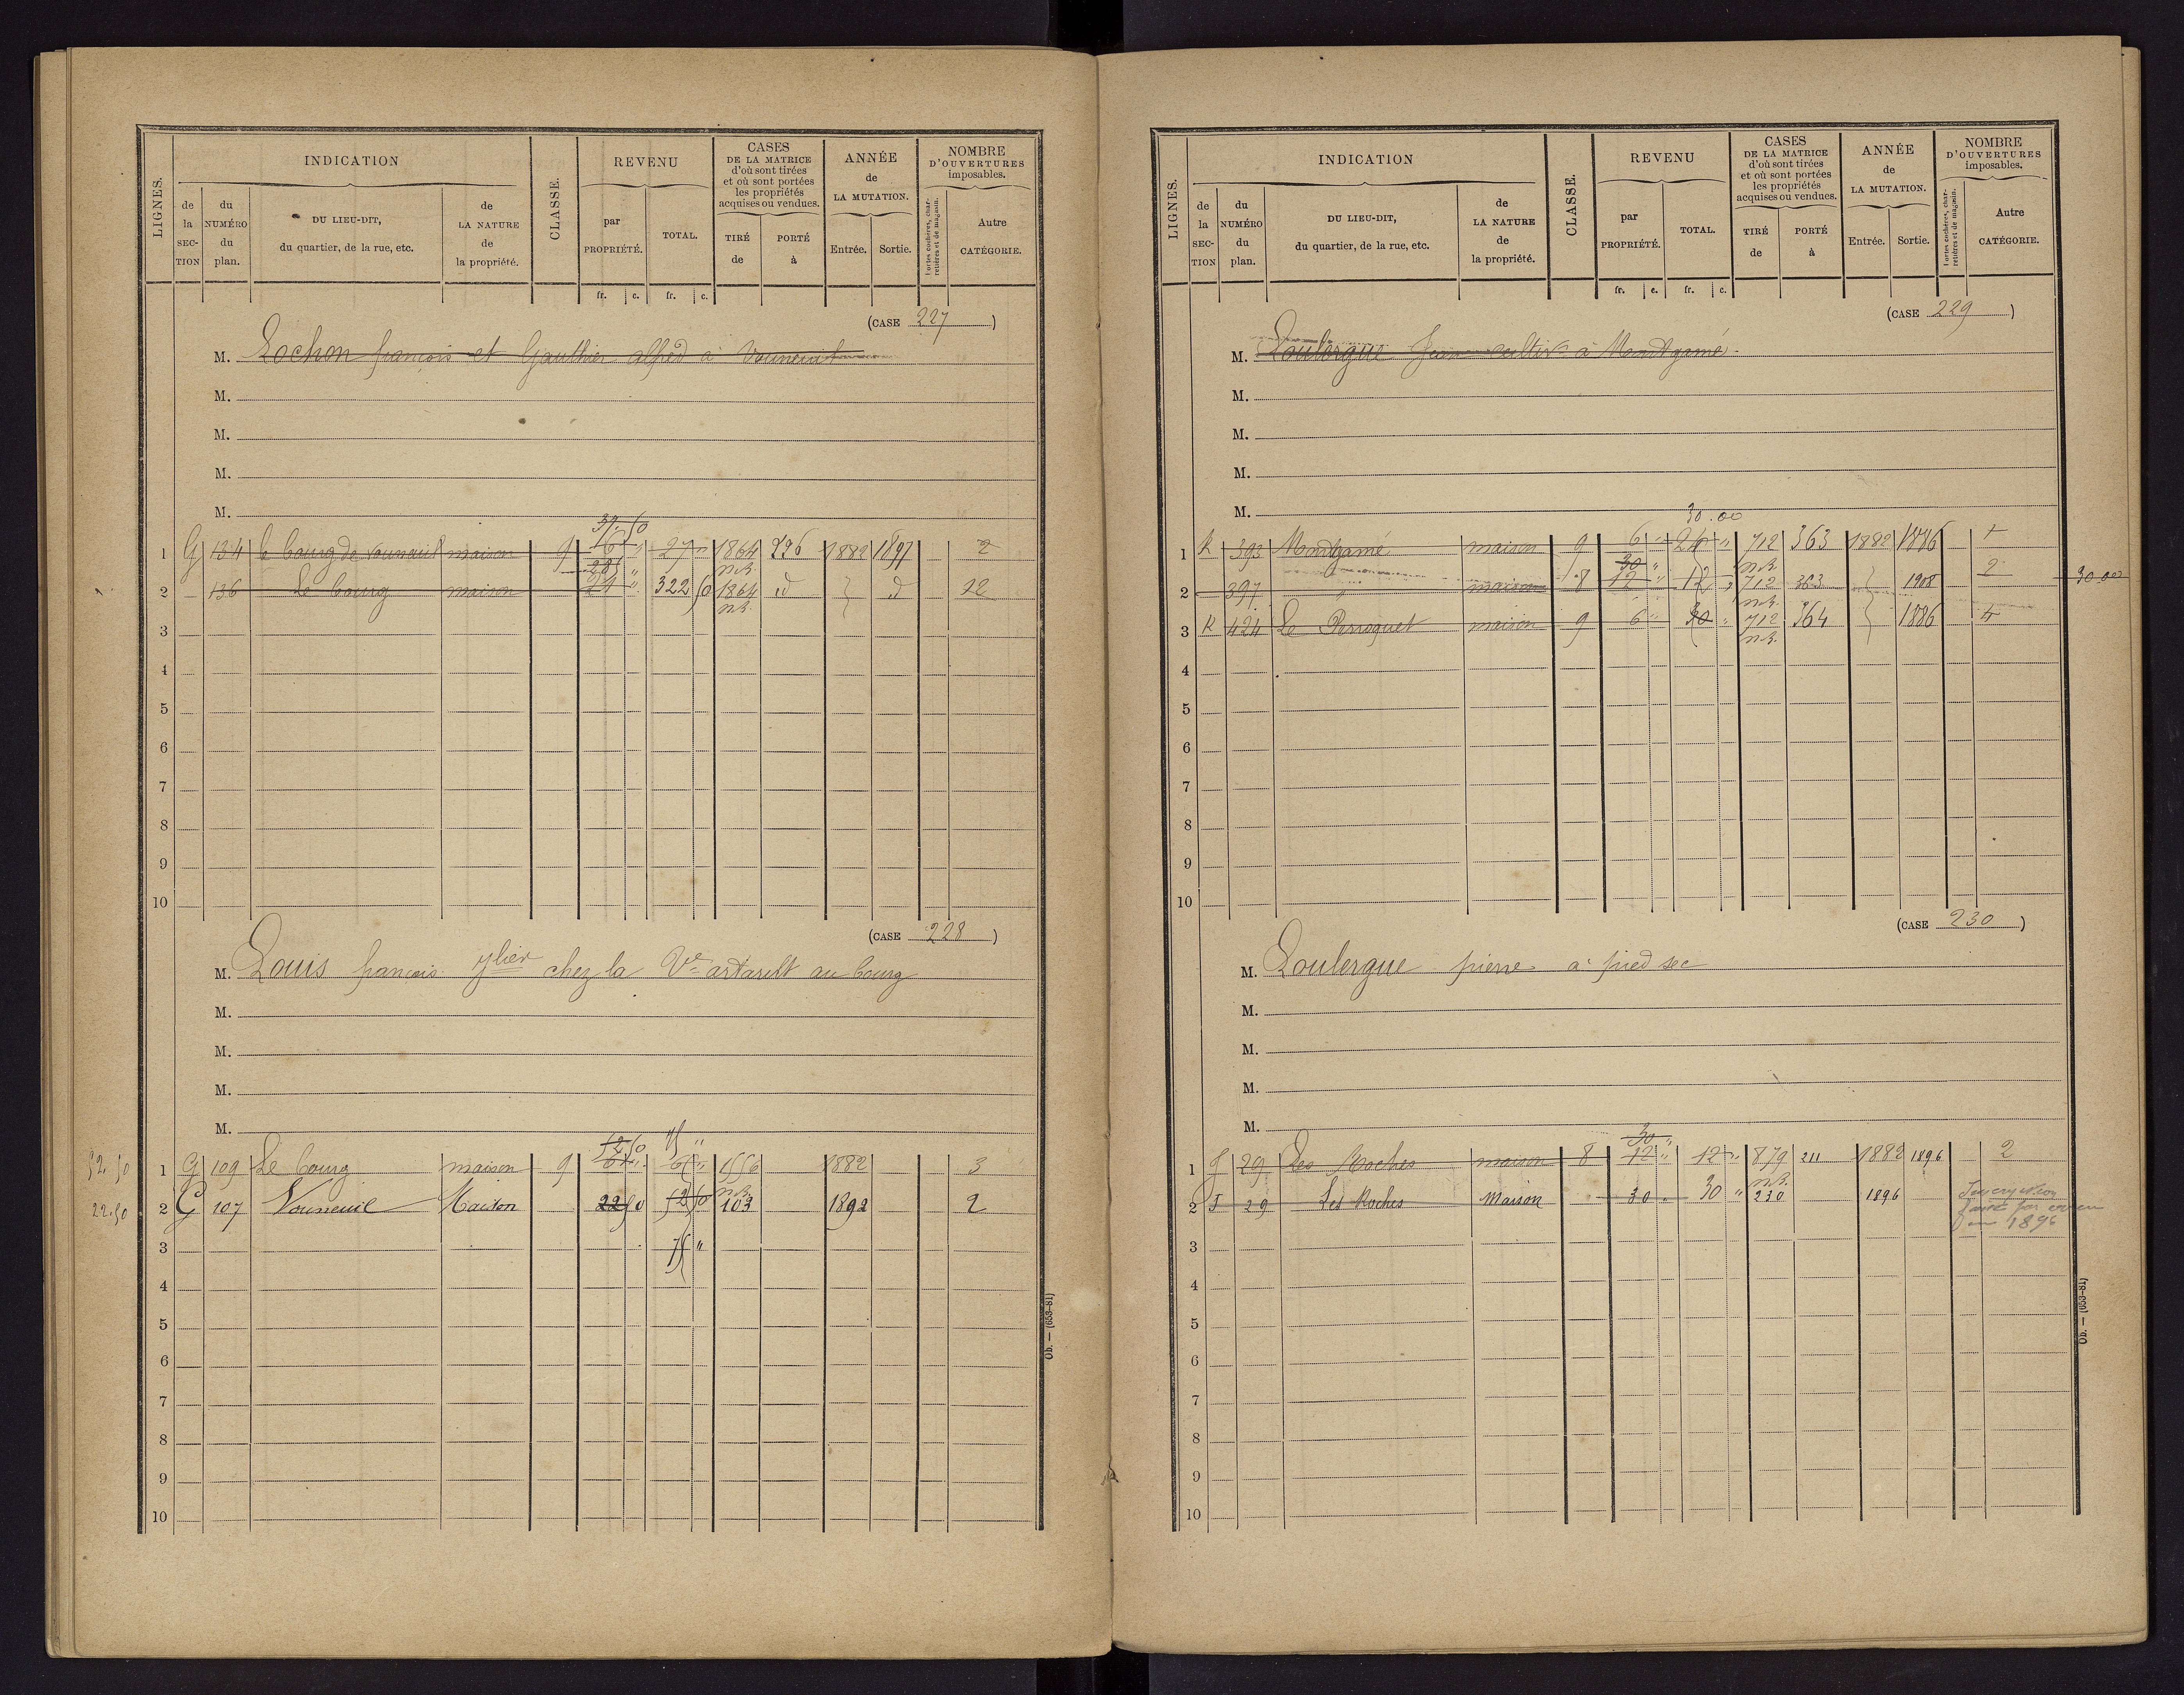 LIGNES.
INDICATION
de la SECTION
du NUMÉRO du plan.
DU LIEU-DIT, du quartier, de la rue, etc.
de LA NATURE de la propriété.
CLASSE.
REVENU
par PROPRIÉTÉ.
TOTAL.
CASES DE LA MATRICE d'où sont tirées et où sont portées les propriétés acquises ou vendues.
TIRÉ de
PORTÉ à
ANNÉE de LA MUTATION.
Entrée.
Sortie.
NOMBRE D'OUVERTURES imposables.
Portes cochères, charretières et de magasin.
Autre CATÉGORIE.
fr. c. fr. c.
(CASE 227)
M. Lochon françois et Gaulthier alfred à Vouneuil
M.
M.
M.
M.
37.50
1 G 134 le bourg de vouneuil maison 9 6 " 27 " 1864 226 1882 1897 2
n.B.
2 136 Le bourg maison 21 " 322 50 1864 d d 12
n.B.
3
4
5
6
7
8
9
10
(CASE 228)
M. Louis françois chez la Ve artarilt au bourg
M.
M.
M.
M.
52 50 75 "
52.50 1 G 109 Le bourg maison 9 6 " 1556 1882 3
n.B.
22.50 2 G 107 Vouneuil Maison 22 50 52 50 103 1892 2
3 75 "
4
5
6
7
8
9
10
Ob. — (653-81)
LIGNES.
INDICATION
de la SECTION
du NUMÉRO du plan.
DU LIEU-DIT, du quartier, de la rue, etc.
de LA NATURE de la propriété.
CLASSE.
REVENU
par PROPRIÉTÉ.
TOTAL.
CASES DE LA MATRICE d'où sont tirées et où sont portées les propriétés acquises ou vendues.
TIRÉ de
PORTÉ à
ANNÉE de LA MUTATION.
Entrée.
Sortie.
NOMBRE D'OUVERTURES imposables.
Portes cochères, charretières et de magasin.
Autre CATÉGORIE.
fr. c. fr. c.
(CASE 229)
M. Loulergue Jean cultivr à Mondgamé
M.
M.
M.
M.
30.00
1 K 393 Mondgamé maison 9 6 " 24 " 712 363 1882 1886
30 " n.B.
2 397 " maison 8 12 " 12 " 712 363 1908 2 30.00
n.B.
3 K 424 Le Perroquet maison 9 6 " 30 " 712 364 1886 4
n.B.
4
5
6
7
8
9
10
(CASE 230)
M. Loulergue pierre à pied sec
M.
M.
M.
M.
30 "
1 J 29 Les Roches maison 8 12 " 12 " 879 211 1882 1896 2
n.B.
2 J 29 Les Roches Maison 30 " 30 " 230 1896 Inscription
faite par erreur
en 1896
3
4
5
6
7
8
9
10
Ob. — (653-81)